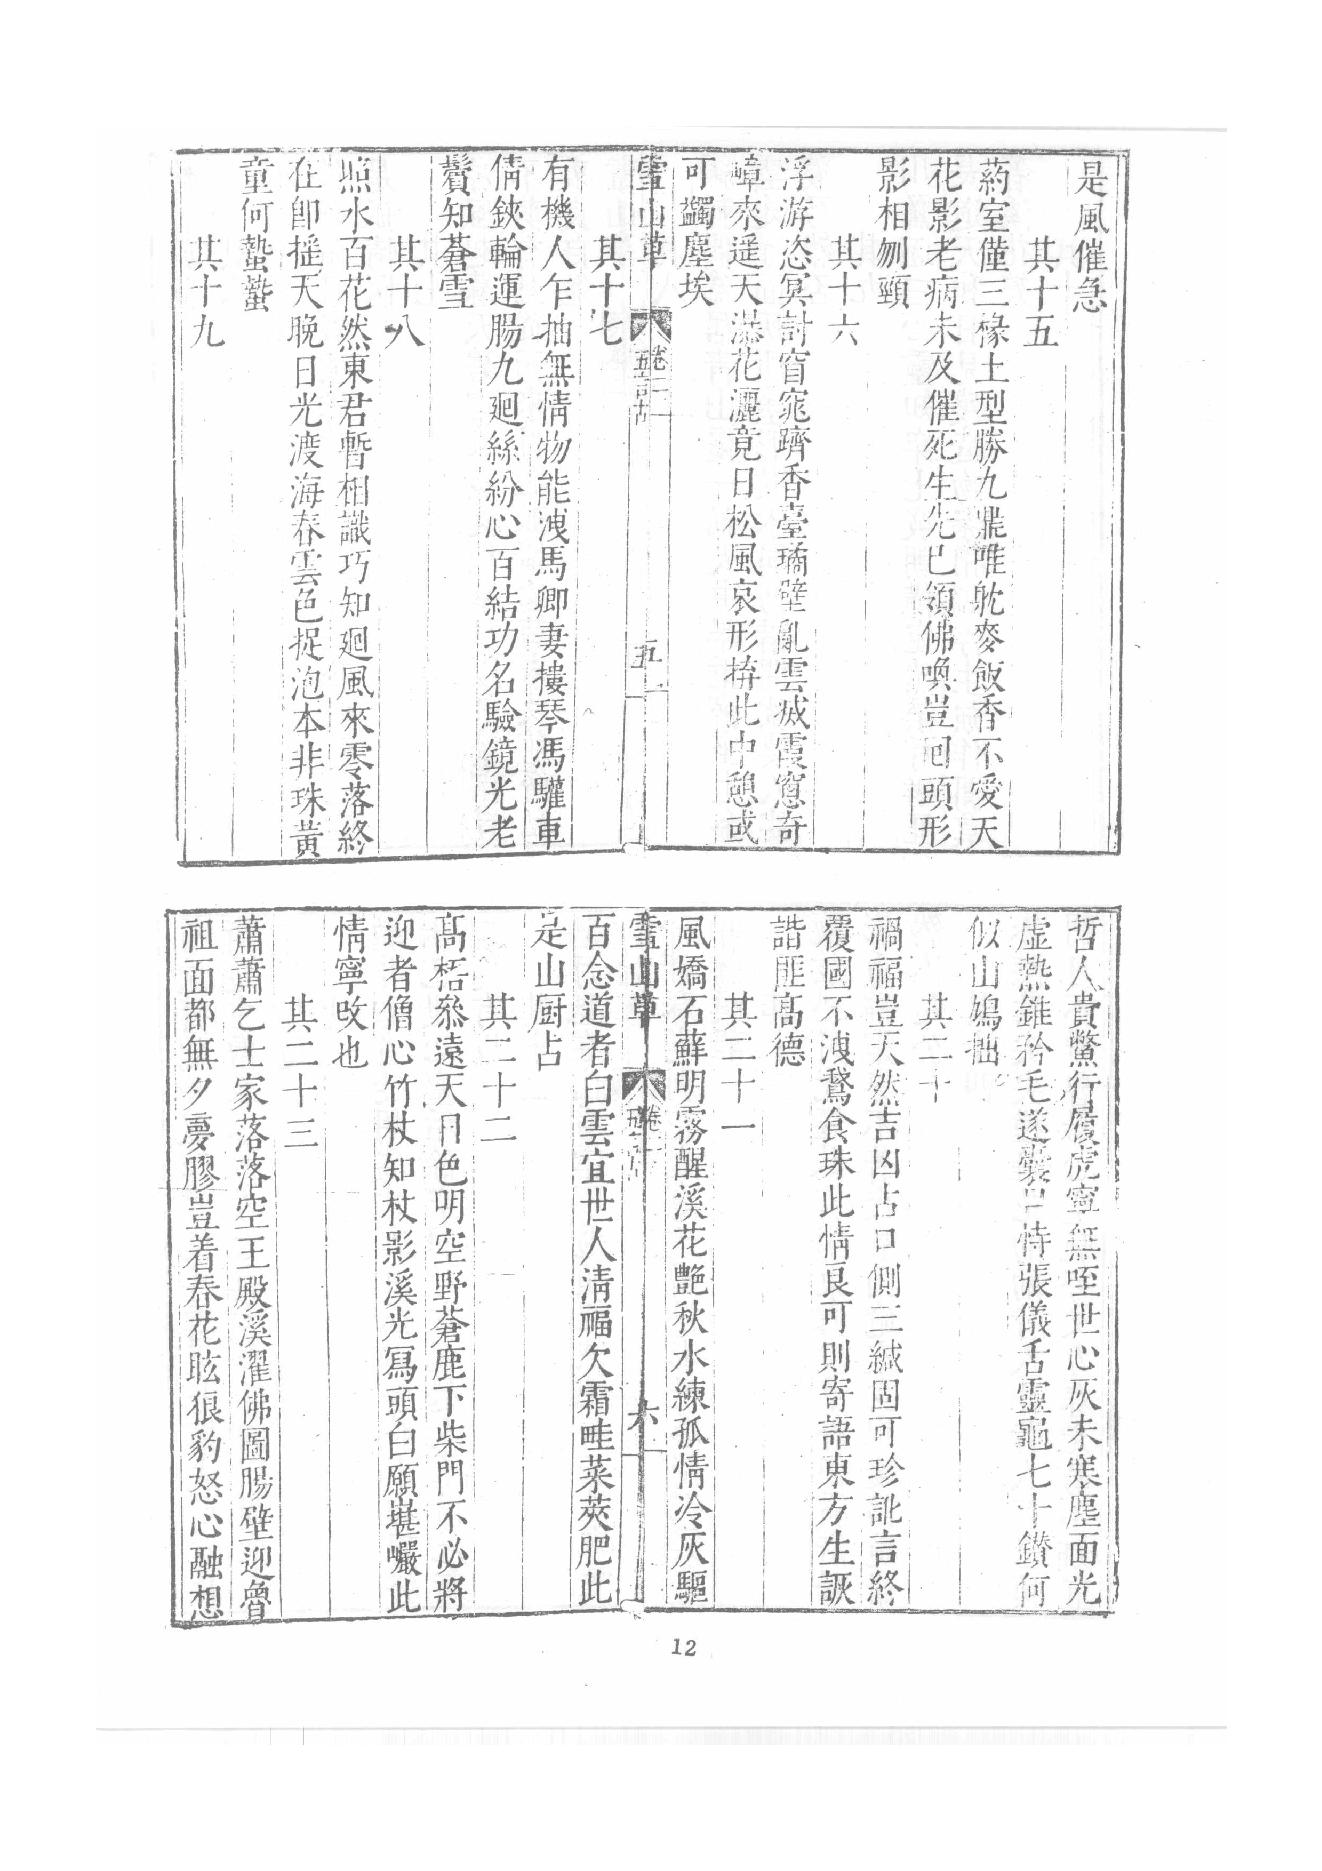 是風催急
其十五
葯室僅三椽土型勝九鼎唯躭麥飯香不愛天
花影老病未及催死生先已領佛喚豈囘頭形
影相刎頸
其十六
浮游恣冥討窅窕躋香臺璚壁亂雲㓕霞窻奇
嶂來遥天濕花灑竟日松風哀形拚此中憩或
可蠲塵埃
雪山草 卷二 五言古 五
其十七
有機人乍抽無情物能洩馬卿妻摟琴馮驩車
倩鋏輪運腸九廻絲紛心百結功名驗鏡光老
鬢知蒼雪
其十八
照水百花然東君暫相識巧知廻風來零落終
在卽揺天晚日光渡海春雲色捉泡本非珠黃
童何蟄蟄
其十九
哲人貴鷩行履虎寧無咥世心灰未寒塵面光
虛熱錐矜毛遂囊口恃張儀舌靈龜七十鑚何
似山鳩拙
其二十
禍福豈天然吉凶占口側三緘固可珍訛言終
覆國不洩鵞食珠此情良可則寄語東方生詼
諧匪髙德
其二十一
風嬌石蘚明霧醒溪花艷秋水練孤情冷灰驅
雪山草 卷二 五言古 六
百念道者白雲宜世人淸福欠霜畦菜莢肥此
是山厨占
其二十二
髙梧叅遠天月色明空野蒼鹿下柴門不必將
迎者僧心竹杖知杖影溪光冩頭白願堪巖此
情寧攺也
其二十三
蕭蕭乞士家落落空王殿溪濯佛圖腸壁迎魯
祖面都無夕夢膠豈着春花眩狼豹怒心融想
12